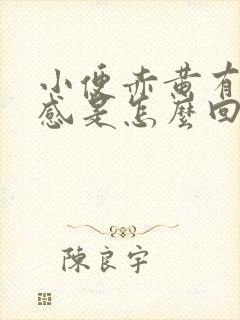 小便赤黄有
感是怎麼回
陳良宇